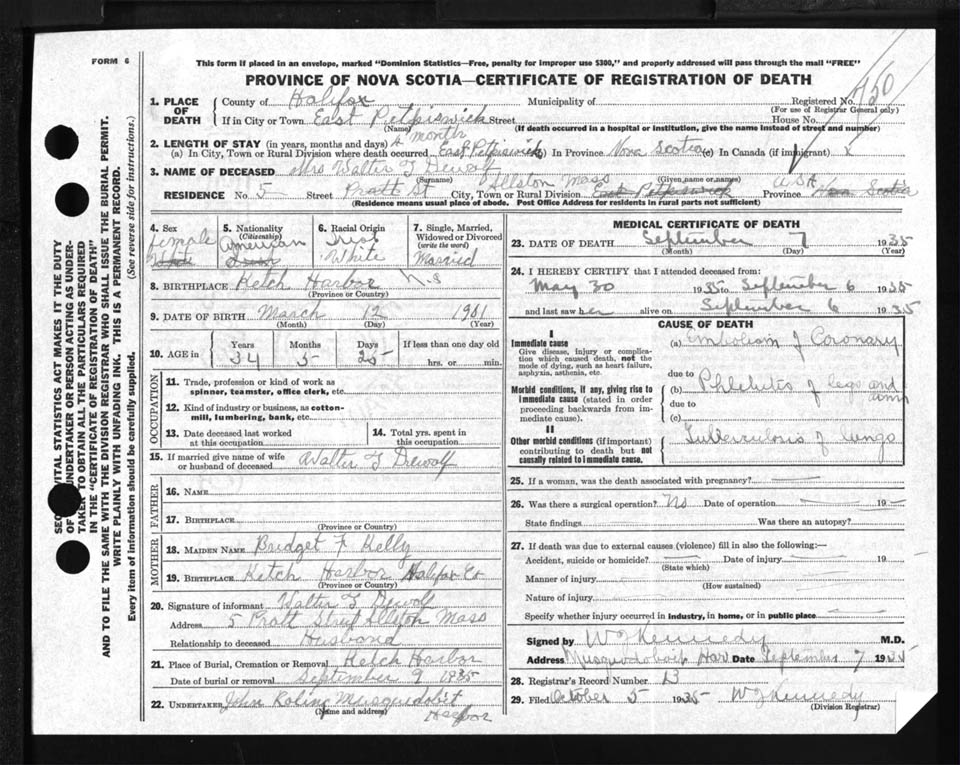 FORM 6
This form if placed in an envelope, marked "Dominion Statistics—Free, penalty for improper use $300," and properly addressed will pass through the mail "FREE"
PROVINCE OF NOVA SCOTIA—CERTIFICATE OF REGISTRATION OF DEATH
450
1. PLACE OF DEATH
County of Halifax Municipality of Registered No.
(For use of Registrar General only)
If in City or Town East Petpiswick Street House No.
(Name) (If death occurred in a hospital or institution, give the name instead of street and number)
2. LENGTH OF STAY (in years, months and days) 4 month
(a) In City, Town or Rural Division where death occurred East Petpiswick (b) In Province Nova Scotia (c) In Canada (if immigrant)
3. NAME OF DECEASED Mrs Walter J Dewolf
(Surname) (Given name or names)
RESIDENCE No. 5 Pratt St City, Town or Rural Division Allston Mass East Petpiswick Province USA Nova Scotia
(Residence means usual place of abode. Post Office Address for residents in rural parts not sufficient)
4. Sex female
5. Nationality (Citizenship) American
6. Racial Origin Irish White
7. Single, Married, Widowed or Divorced (write the word) Married
8. BIRTHPLACE Ketch Harbor N.S
(Province or Country)
9. DATE OF BIRTH March 12 1901
(Month) (Day) (Year)
10. AGE in Years 34 Months 5 Days 25 If less than one day old hrs. or min.
OCCUPATION
11. Trade, profession or kind of work as spinner, teamster, office clerk, etc.
12. Kind of industry or business, as cotton-mill, lumbering, bank, etc.
13. Date deceased last worked at this occupation
14. Total yrs. spent in this occupation
15. If married give name of wife or husband of deceased Walter J Dewolf
FATHER
16. NAME
17. BIRTHPLACE
(Province or Country)
MOTHER
18. MAIDEN NAME Bridget F Kelly
19. BIRTHPLACE Ketch Harbor Halifax Co
(Province or Country)
20. Signature of informant Walter J Dewolf
Address 5 Pratt Street Allston Mass
Relationship to deceased Husband
21. Place of Burial, Cremation or Removal Ketch Harbor
Date of burial or removal September 9 1935
22. UNDERTAKER John Musquodobit Harbor
(Name and address)
MEDICAL CERTIFICATE OF DEATH
23. DATE OF DEATH September 7 1935
(Month) (Day) (Year)
24. I HEREBY CERTIFY that I attended deceased from:
May 30 1935 to September 6 1935
and last saw her alive on September 6 1935
CAUSE OF DEATH
I
Immediate cause
Give disease, injury or complication which caused death, not the mode of dying, such as heart failure, asphyxia, asthenia, etc.
(a) Embolism of Coronary
due to
Morbid conditions, if any, giving rise to immediate cause (stated in order proceeding backwards from immediate cause).
(b) Phlebitis of legs and arms
due to
(c)
II
Other morbid conditions (if important) contributing to death but not causally related to immediate cause.
Tuberculosis of lungs
25. If a woman, was the death associated with pregnancy?
26. Was there a surgical operation? No Date of operation 19
State findings Was there an autopsy?
27. If death was due to external causes (violence) fill in also the following:—
Accident, suicide or homicide? Date of injury 19
(State which)
Manner of injury
(How sustained)
Nature of injury
Specify whether injury occurred in industry, in home, or in public place
Signed by W J Kennedy M.D.
Address Musquodoboit Har Date September 7 1935
28. Registrar's Record Number 13
29. Filed October 5 1935 W J Kennedy
(Division Registrar)
VITAL STATISTICS ACT MAKES IT THE DUTY
OF UNDERTAKER OR PERSON ACTING AS UNDER-
TAKER TO OBTAIN ALL THE PARTICULARS REQUIRED
IN THE "CERTIFICATE OF REGISTRATION OF DEATH"
AND TO FILE THE SAME WITH THE DIVISION REGISTRAR WHO SHALL ISSUE THE BURIAL PERMIT.
WRITE PLAINLY WITH UNFADING INK. THIS IS A PERMANENT RECORD.
Every item of information should be carefully supplied. (See reverse side for instructions.)